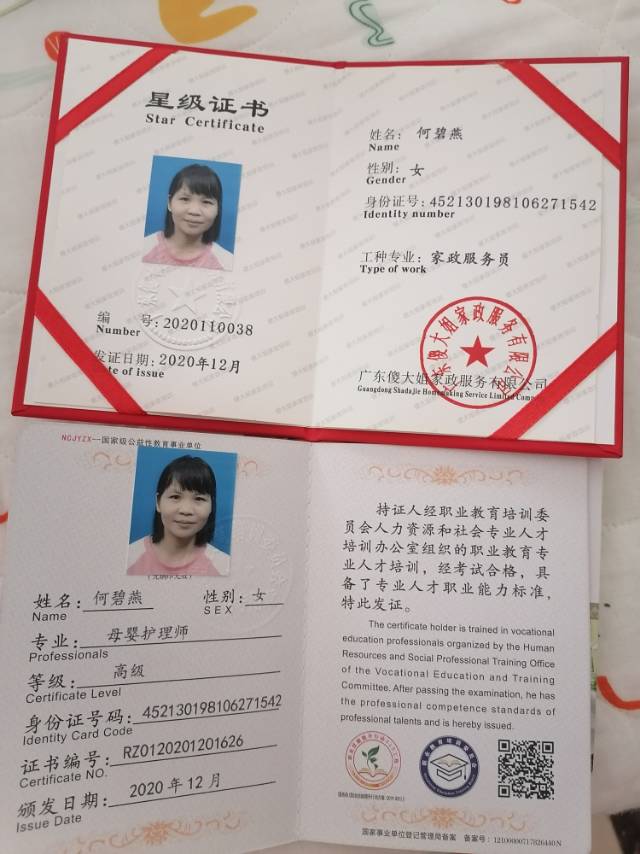 星级证书
Star Certificate
编 号:2020110038
Number
发证日期:2020年12月
Date of issue
姓名:何碧燕
Name
性别:女
Gender
身份证号:452130198106271542
Identity number
工种专业:家政服务员
Type of work
广东傻大姐家政服务有限公司
广东傻大姐家政服务有限公司
Guangdong Shadajie Homemaking Service Limited Company
NCJYZX—国家级公益性教育事业单位
姓名:何碧燕 性别:女
Name SEX
专业:母婴护理师
Professionals
等级:高级
Certificate Level
身份证号码:452130198106271542
Identity Card Code
证书编号:RZ0120201201626
Certificate NO.
颁发日期:2020年12月
Issue Date
持证人经职业教育培训委
员会人力资源和社会专业人才
培训办公室组织的职业教育专
业人才培训，经考试合格，具
备了专业人才职业能力标准，
特此发证。
The certificate holder is trained in vocational
education professionals organized by the Human
Resources and Social Professional Training Office
of the Vocational Education and Training
Committee. After passing the examination, he has
the professional competence standards of
professional talents and is hereby issued.
国家事业单位登记管理局备案 备案号:12100000717826440N